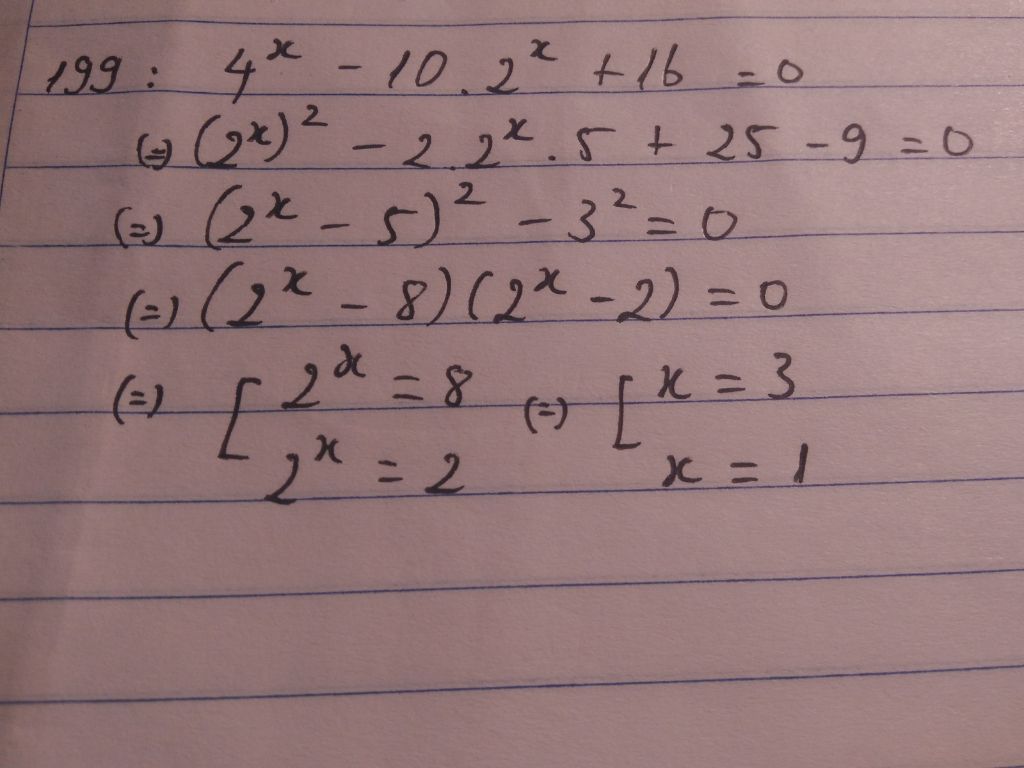 199: 4^x - 10. 2^x + 16 = 0
(=) (2^x)^2 - 2.2^x.5 + 25 - 9 = 0
(=) (2^x - 5)^2 - 3^2 = 0
(=) (2^x - 8)(2^x - 2) = 0
(=) [ 2^x = 8 (=) [ x = 3
2^x = 2 x = 1